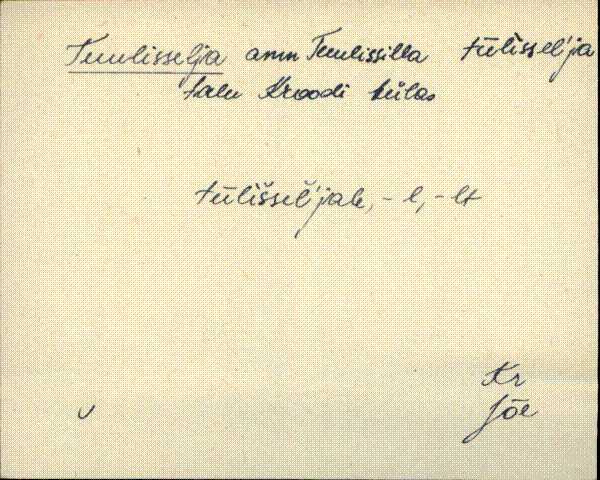 Tuulisselja amm Tuulissilla tūlìssel'ja
talu Kroodi külas
tūlìššel'jale, -l, -lt
Kr
Jõe